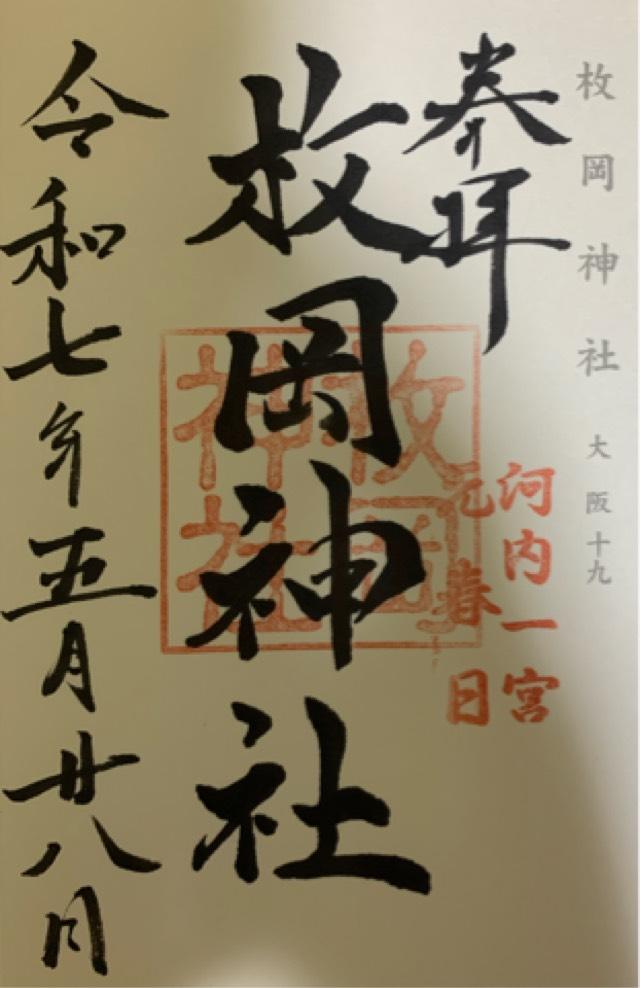 枚岡神社 大阪十九
奉拝
河内一宮
元春日
枚岡神社
枚岡神社
令和七年五月廿八日